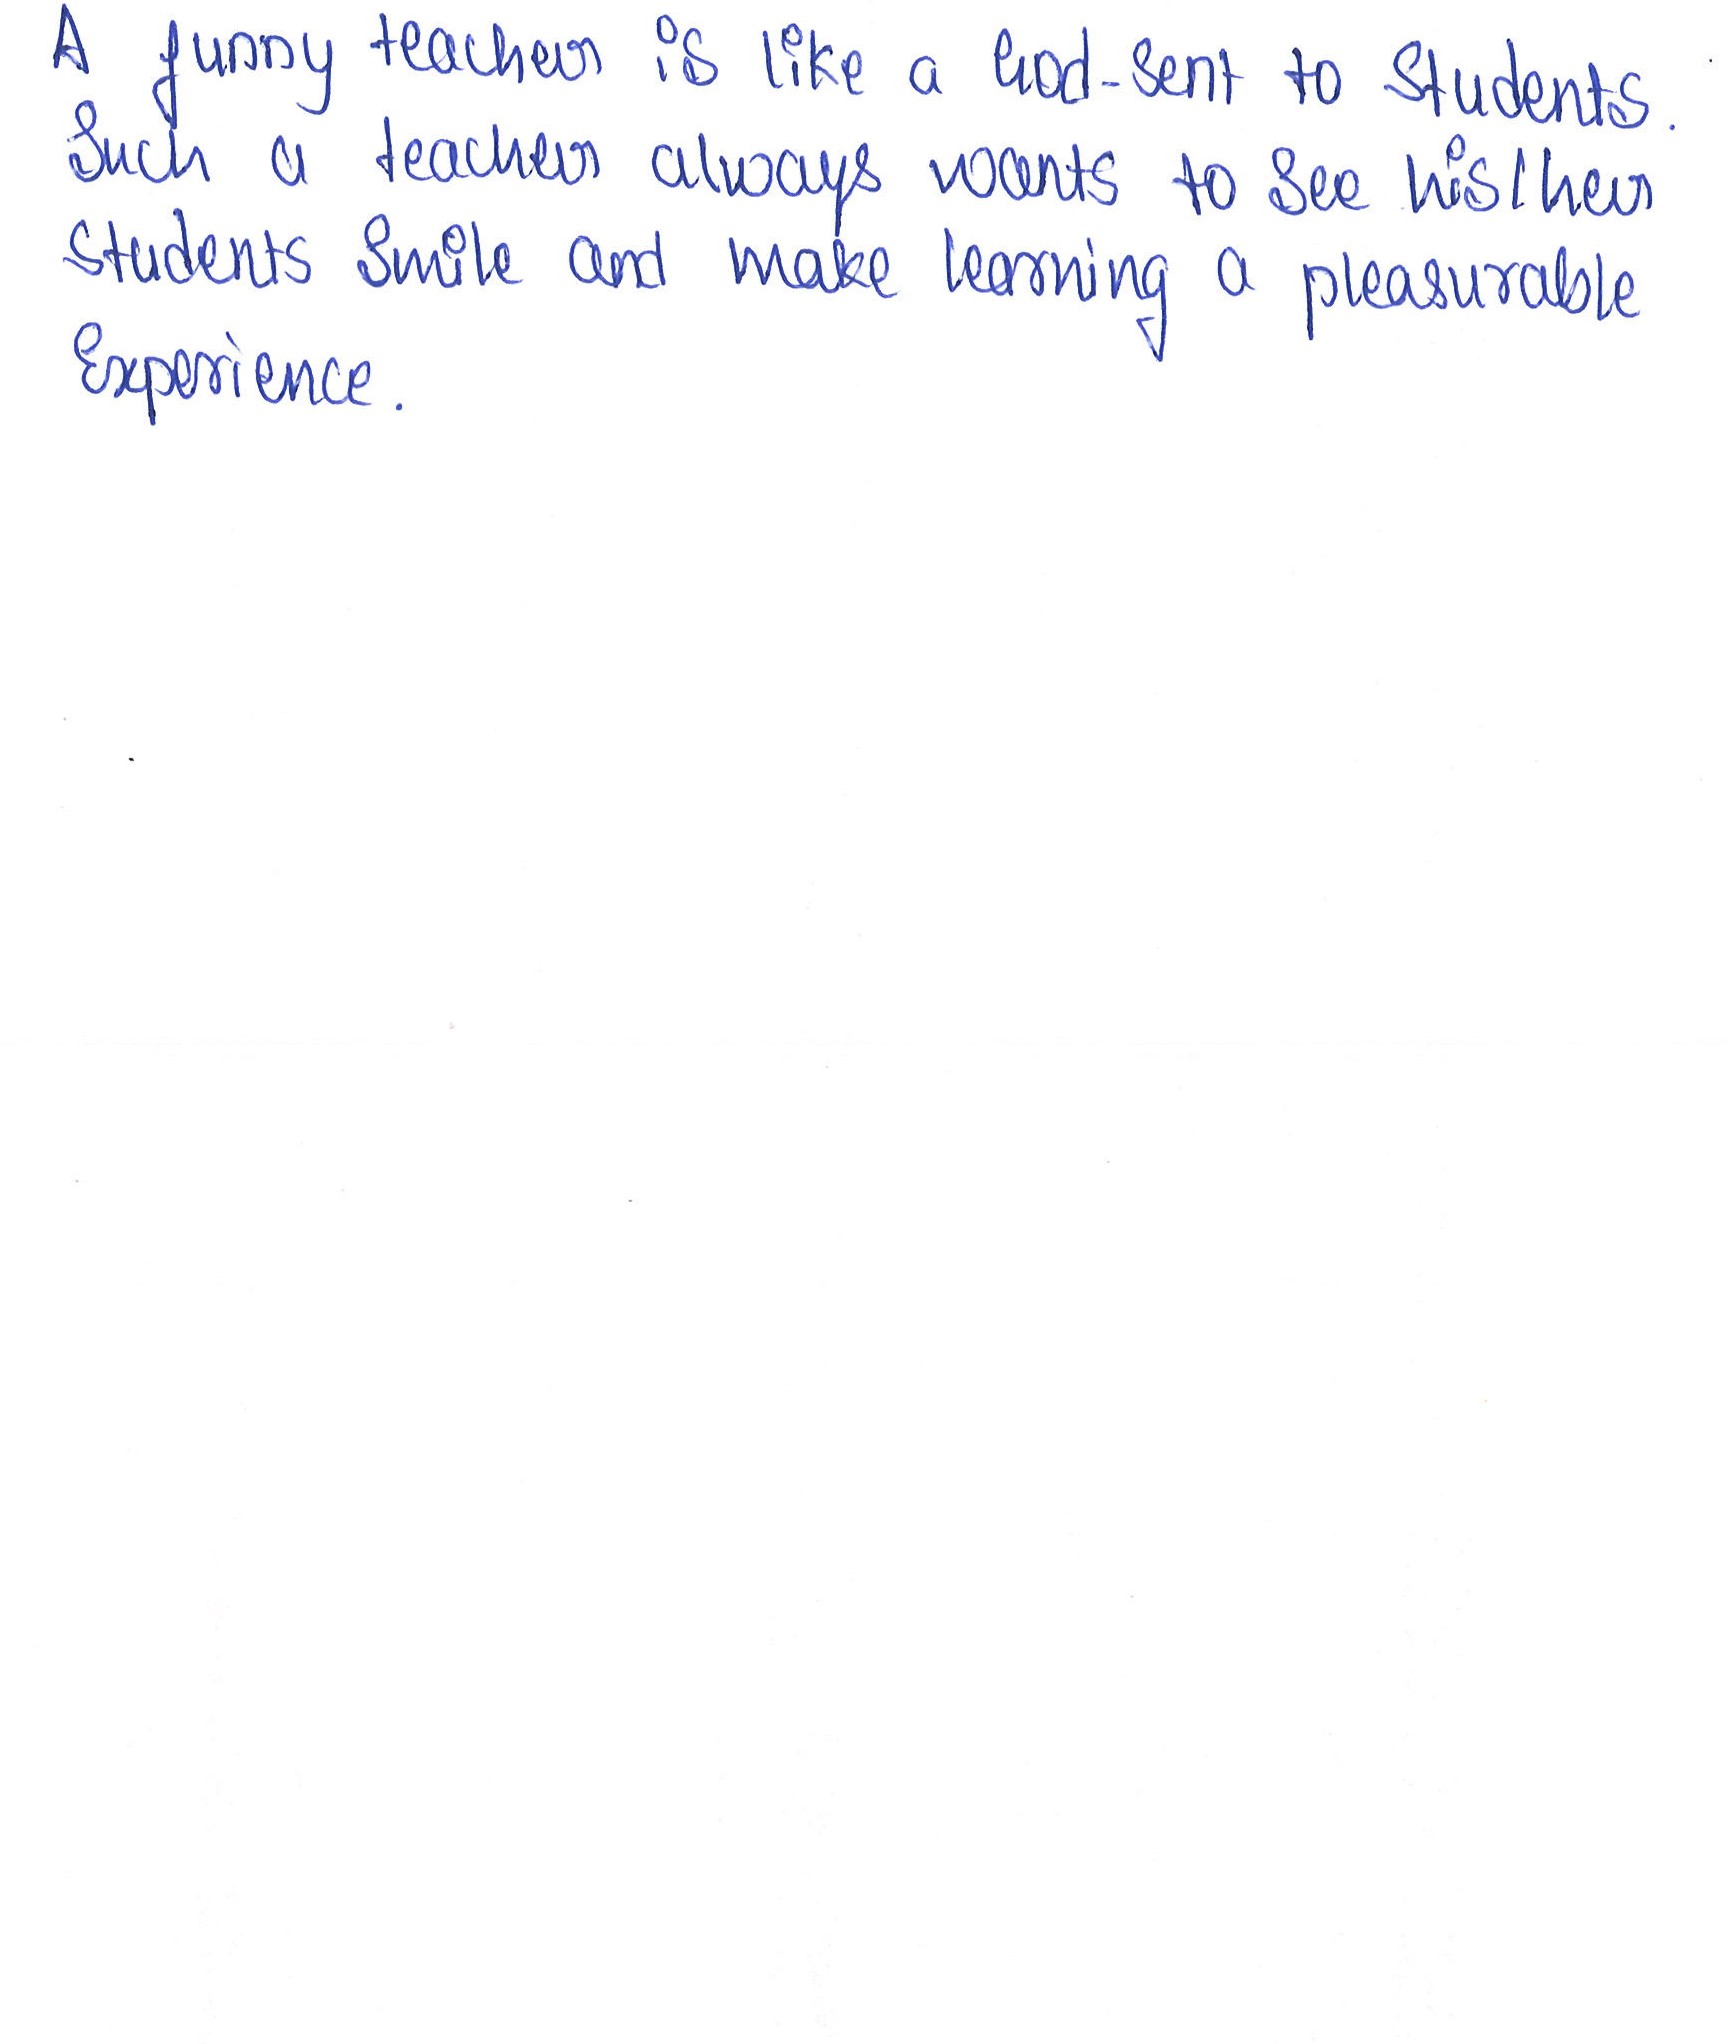 A funny teacher is like a God-sent to students.
Such a teacher always wants to see his/her
students smile and make learning a pleasurable
Experience.